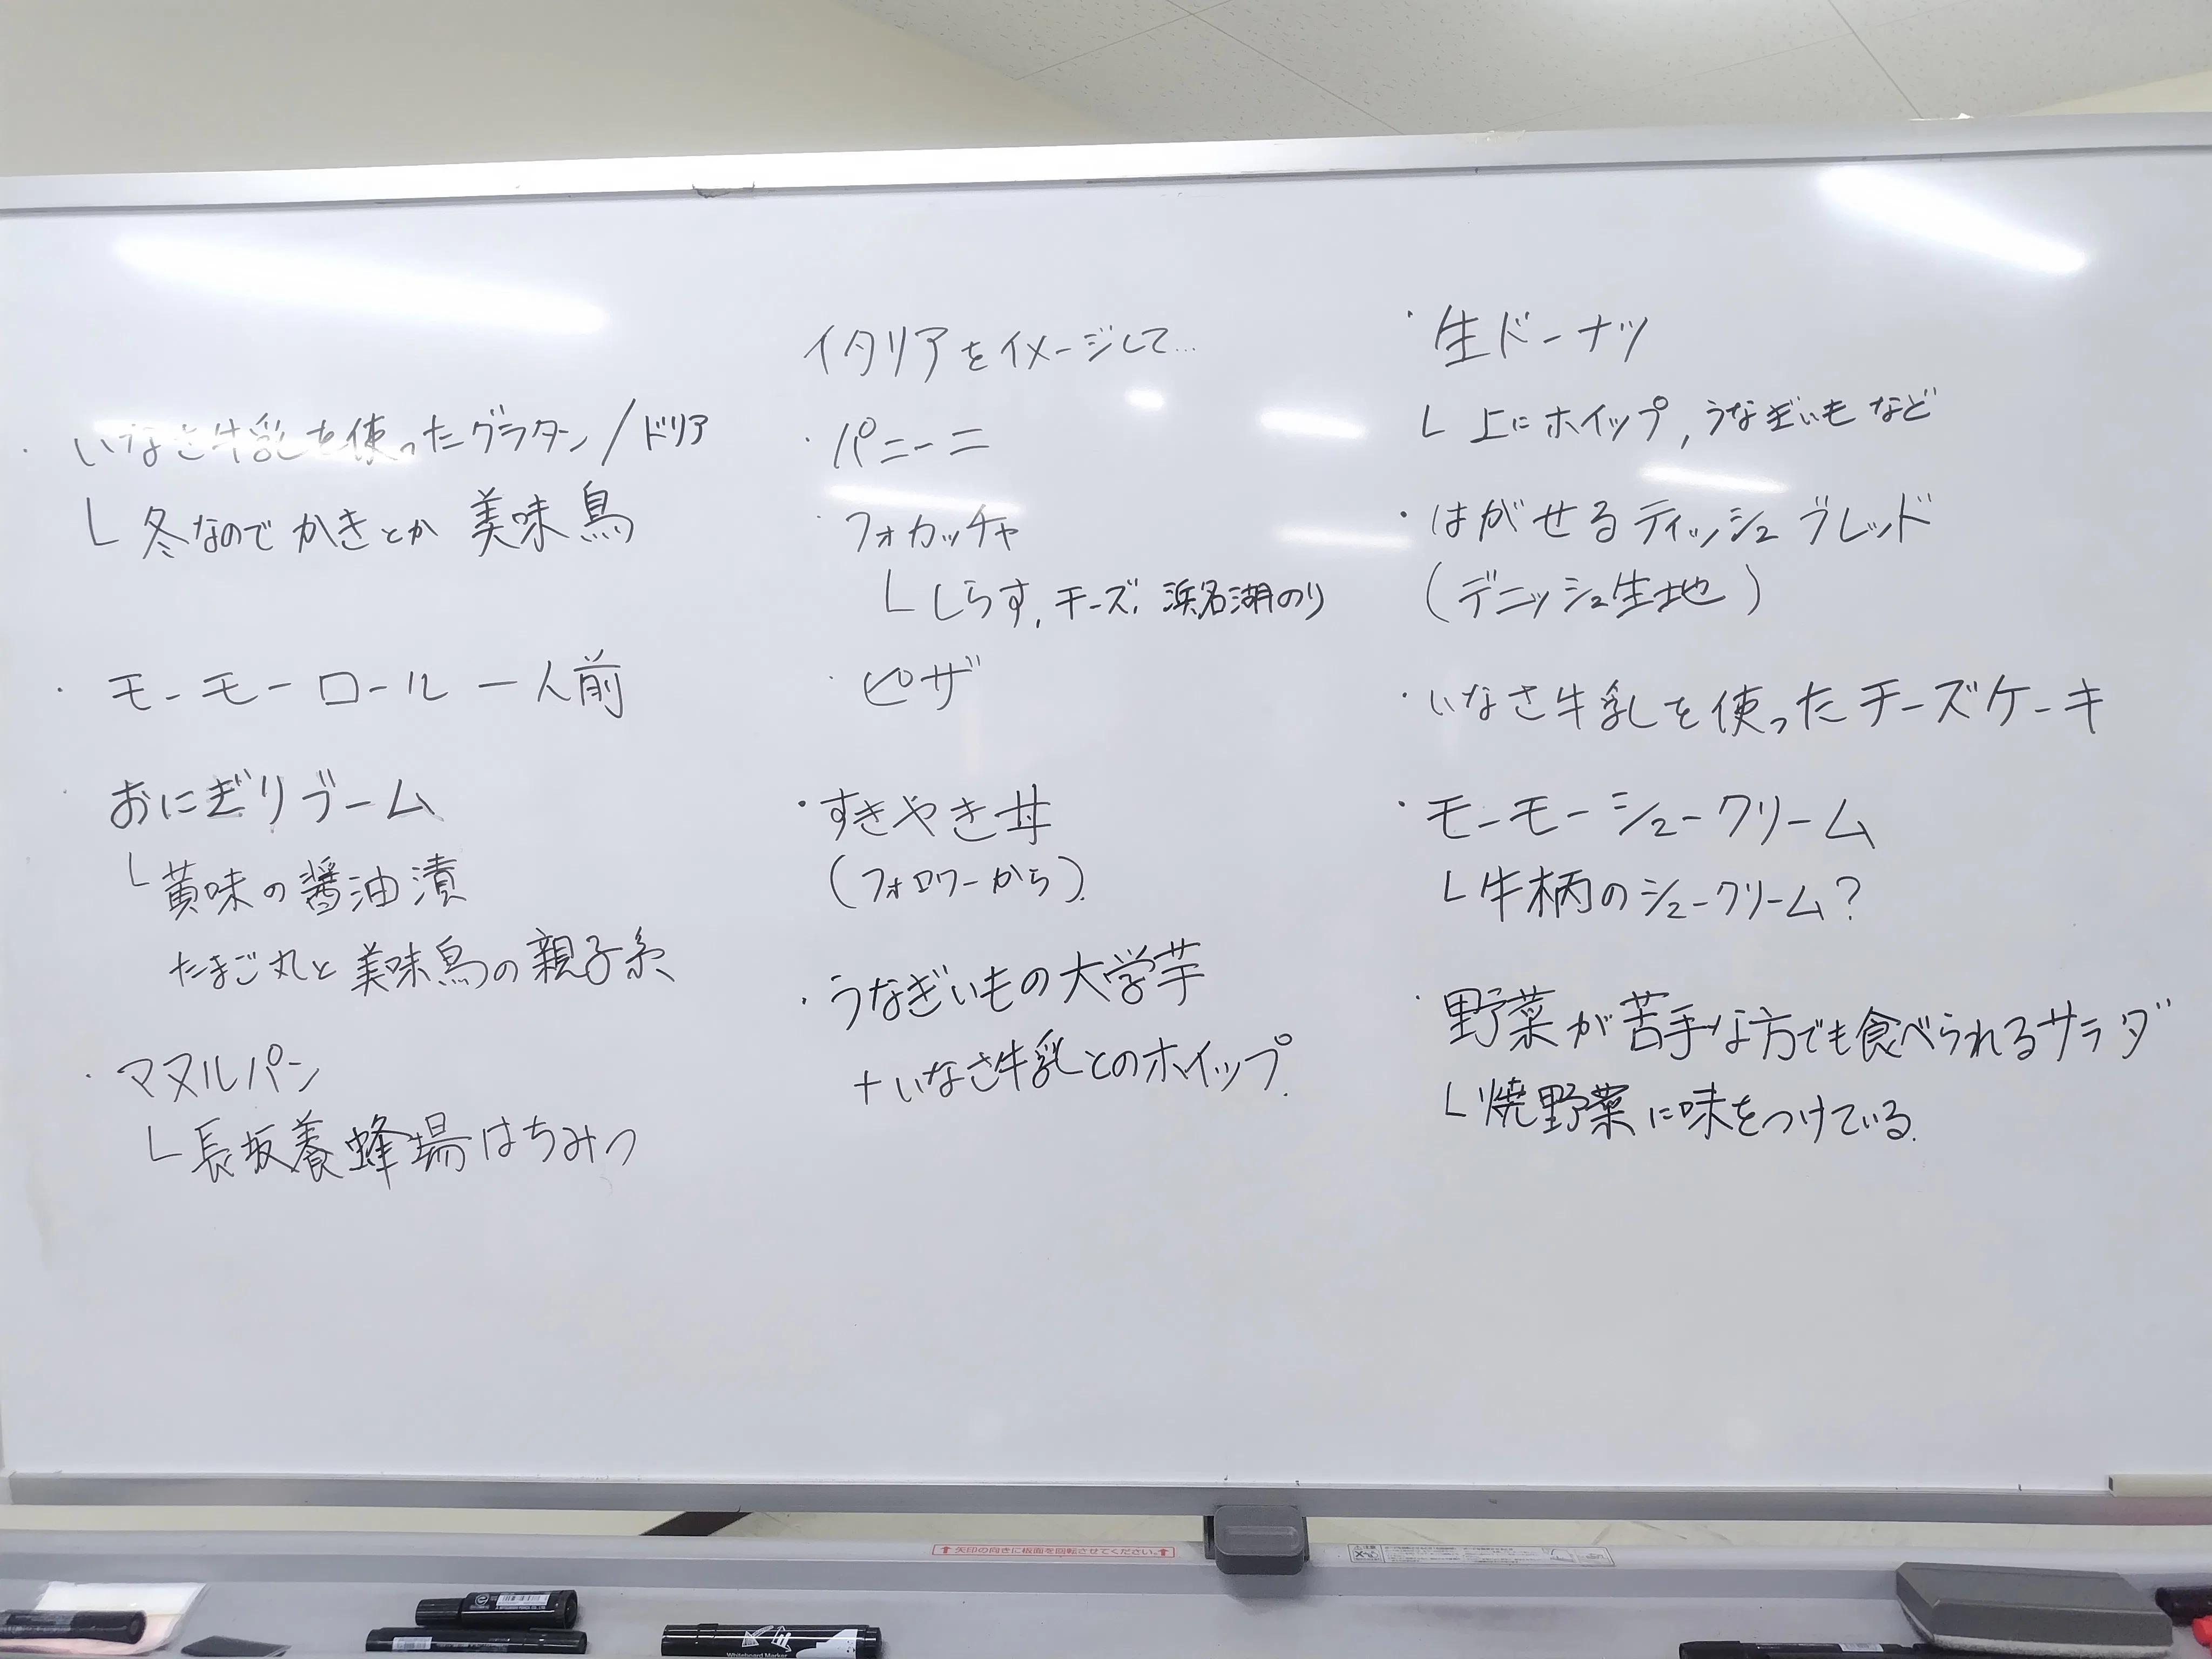 ・いなさ牛乳を使ったグラタン/ドリア
└ 冬なのでかきとか 美味鳥
・モーモーロール 一人前
・おにぎりブーム
└ 黄味の醤油漬
たまご丸と美味鳥の親子系
・マヌルパン
└ 長坂養蜂場はちみつ
イタリアをイメージして...
・パニーニ
・フォカッチャ
└ しらす, チーズ, 浜名湖のり
・ピザ
・すきやき丼
(フォロワーから).
・うなぎいもの大学芋
+いなさ牛乳とのホイップ.
・生ドーナツ
└ 上にホイップ, うなぎいもなど
・はがせるティッシュブレッド
(デニッシュ生地)
・いなさ牛乳を使ったチーズケーキ
・モーモーシュークリーム
└ 牛柄のシュークリーム?
・野菜が苦手な方でも食べられるサラダ
└ 焼野菜に味をつけている.
矢印の向きに板面を回転させてください。
Whiteboard Marker